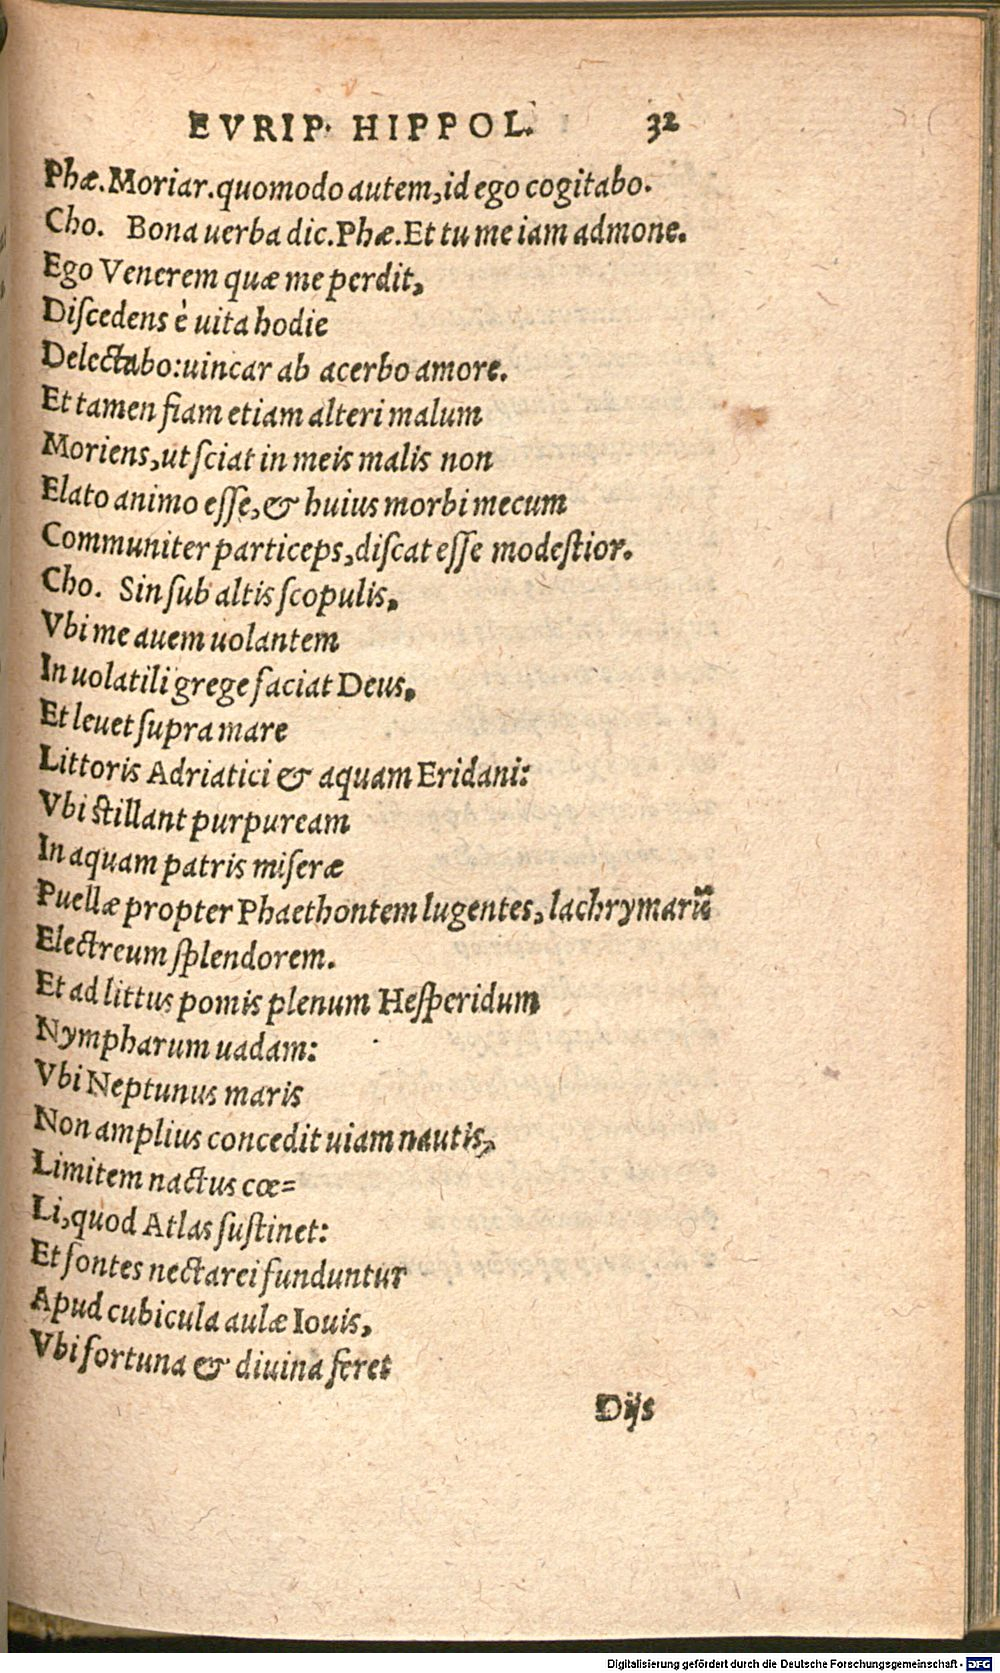 EVRIP. HIPPOL. 32
Phæ. Moriar. quomodo autem, id ego cogitabo.
Cho. Bona uerba dic. Phæ. Et tu me iam admone.
Ego Venerem quæ me perdit,
Diſcedens è uita hodie
Delectabo: uincar ab acerbo amore.
Et tamen fiam etiam alteri malum
Moriens, ut ſciat in meis malis non
Elato animo eſſe, & huius morbi mecum
Communiter particeps, diſcat eſſe modeſtior.
Cho. Sin ſub altis ſcopulis,
Vbi me auem uolantem
In uolatili grege faciat Deus,
Et leuet ſupra mare
Littoris Adriatici & aquam Eridani:
Vbi ſtillant purpuream
In aquam patris miſeræ
Puellæ propter Phaethontem lugentes, lachrymarũ
Electreum ſplendorem.
Et ad littus pomis plenum Heſperidum
Nympharum uadam:
Vbi Neptunus maris
Non amplius concedit uiam nautis,
Limitem nactus cœ=
Li, quod Atlas ſuſtinet:
Et fontes nectarei funduntur
Apud cubicula aulæ Iouis,
Vbi fortuna & diuina feret
Dijs
Digitalisierung gefördert durch die Deutsche Forschungsgemeinschaft - DFG